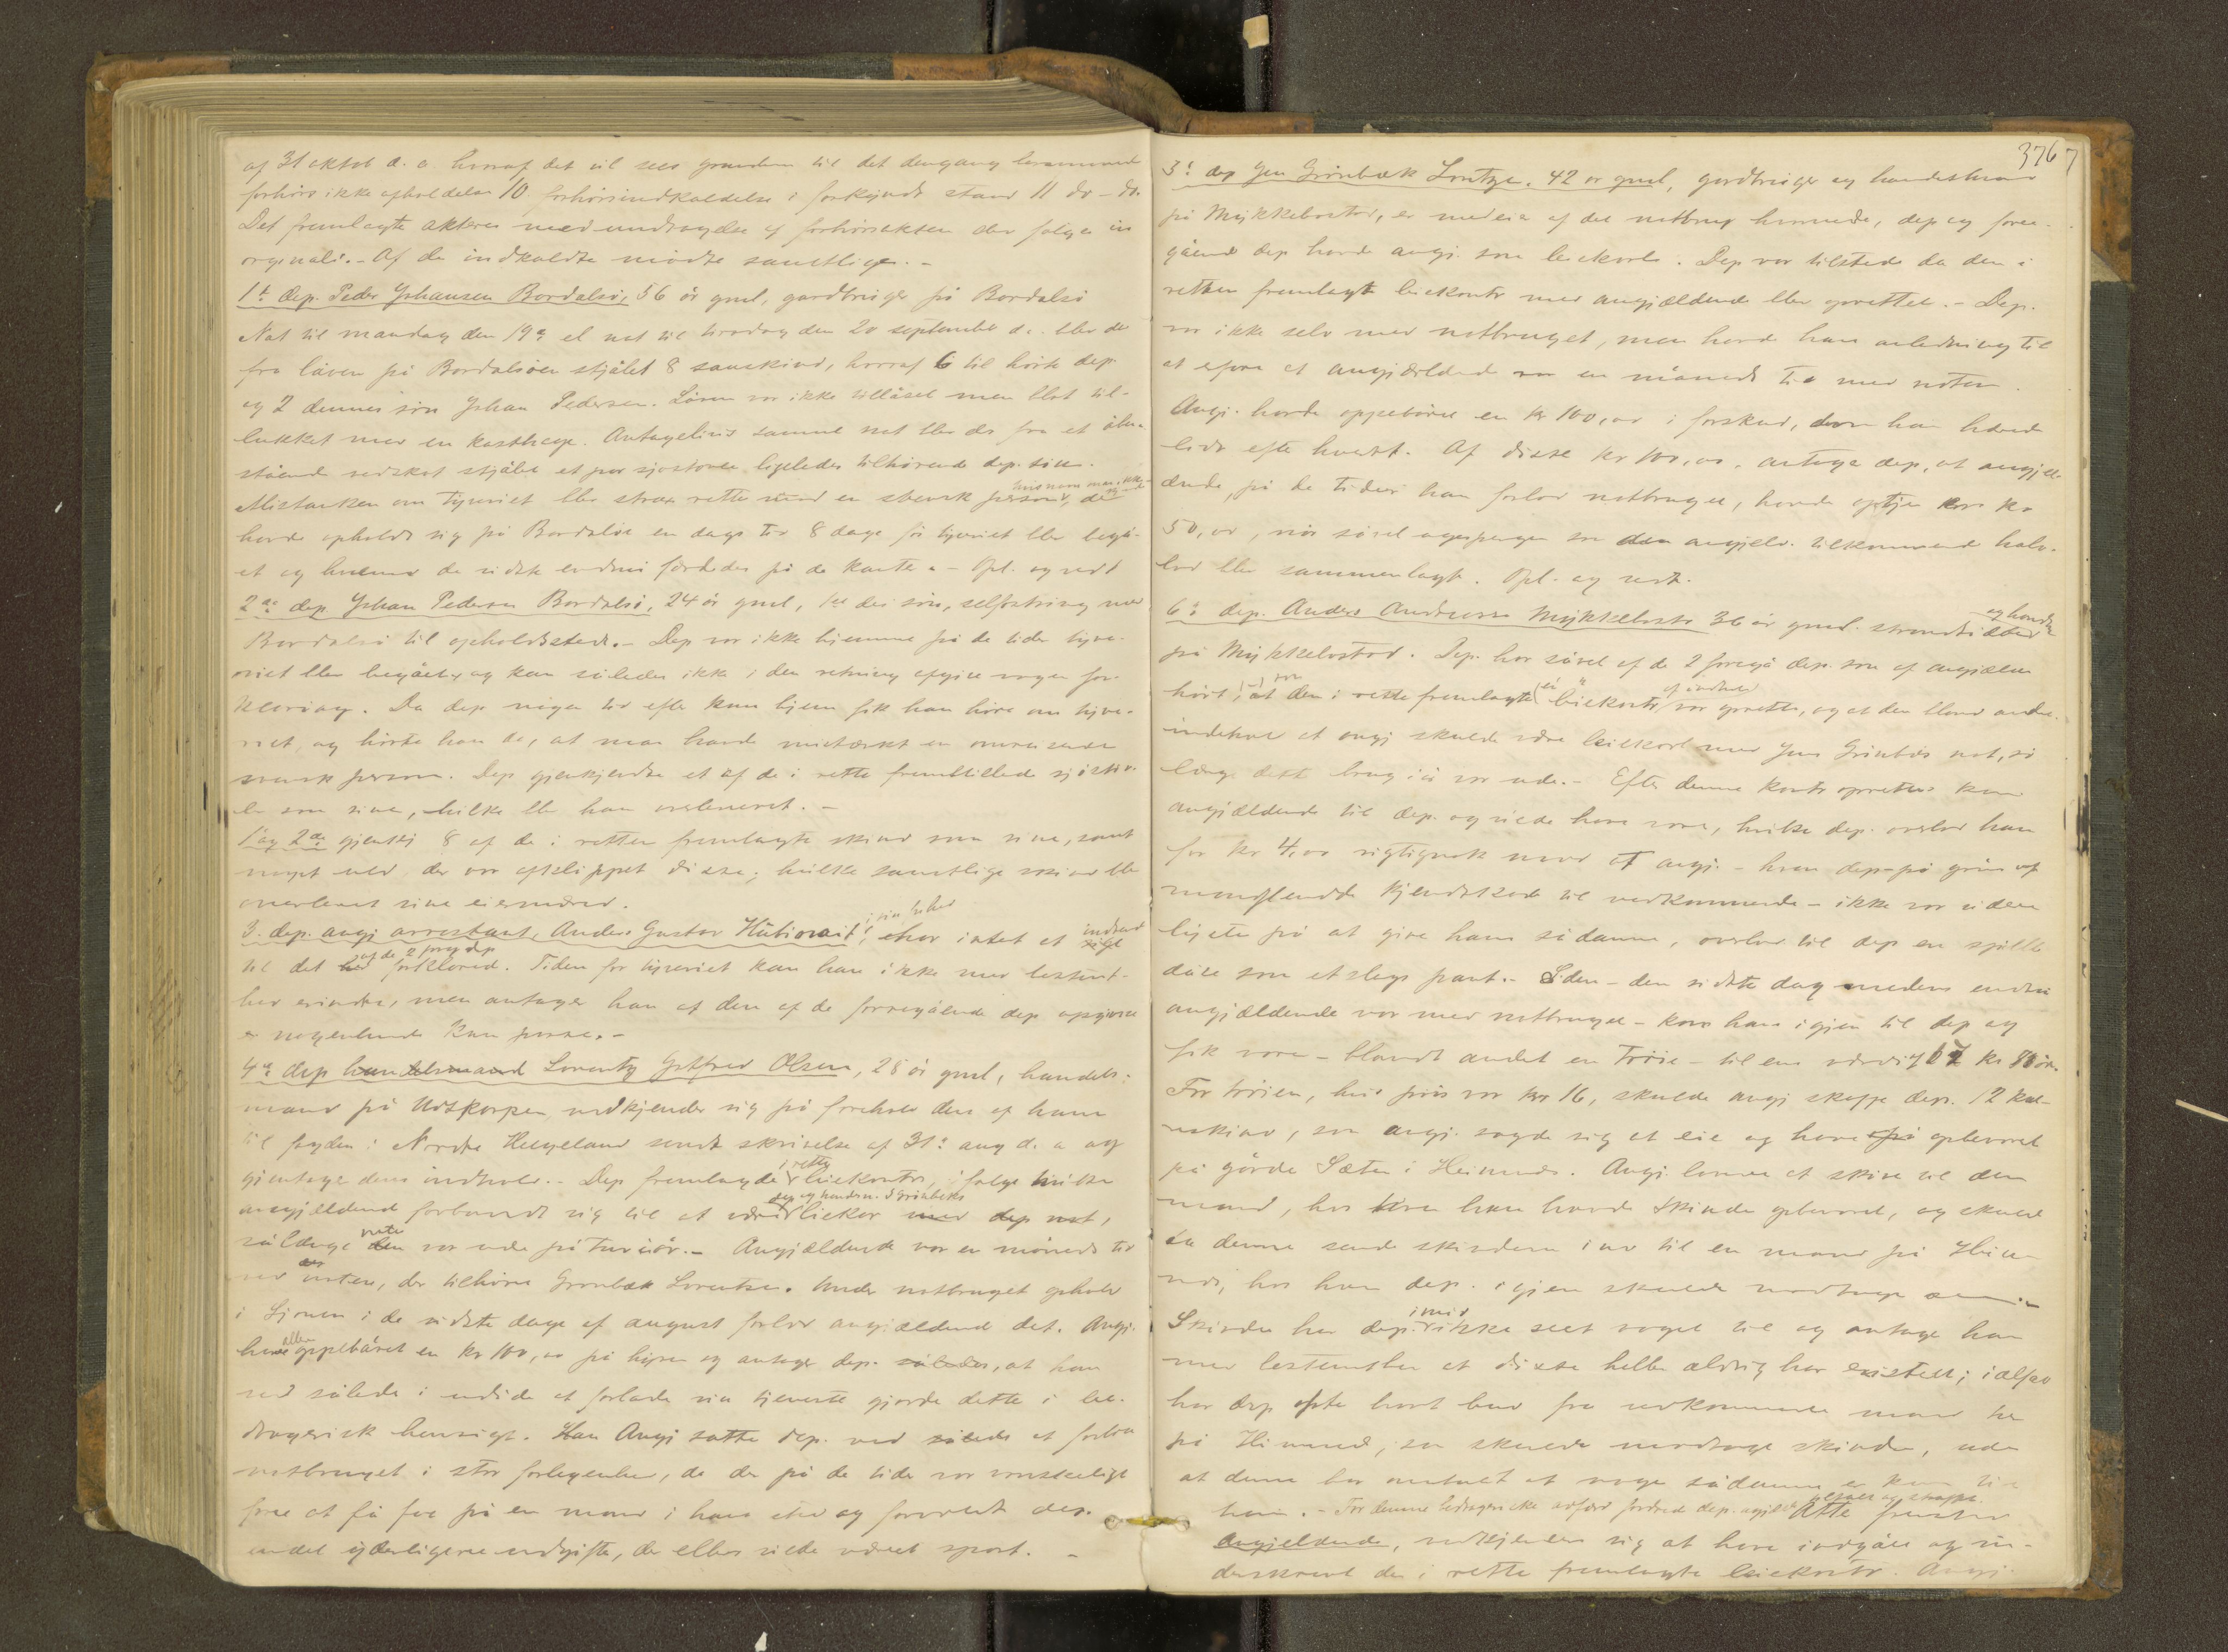 af 31 oktob d. a. hvoraf det vil sees grunden til det dengang berammede
forhørs ikke afholdelse 10. forhørsindkaldelse i forkyndt stand 11 do – do.
Det fremlagte akteres med undtagelse af forhørsakten der følger in
orginali. – Af de indkaldte mødte samtlige. –
1ste dep. Peder Johansen Bordalsø, 56 år gml, gardbruger på Bordalsø
Nat til mandag den 19de el nat til tirsdag den 20 september d. a. blev der
fra låven på Bordalsøen stjålet 8 saueskind, hvoraf 6 tilhørte dep.
og 2 dennes søn Johan Pedersen. Låven var ikke tillåset men blot til-
lukket med en kasthage. Antagelivis samme nat blev der fra et
stående nedskot stjålet et par sjøstøvler ligeledes tilhørende dep. søn.
Mistanken om tyveriet blev strax rettet mod en svensk person, der
havde opholdt sig på Bordalsø en dags tid 8 dage før tyveriet blev begå-
et og hvilken de sidste endnu færdedes på de kanter. – Opl. og vedt
2de dep. Johan Pedersen Bordalsø, 24 år gml, 1ste des søn, selfostring med
Bordalsø til opholdssted. – Dep var ikke hjemme på de tider tyve-
riet blev begået, og kan således ikke i den retning afgive nogen for-
klaring. Da dep nogen tid efter kom hjem fik han høre om tyve-
riet, og hørte han da, at man havde mistænkt en omreisende
svensk person. Dep gjenkjendte et af de i rette fremstillede sjøstøv-
ler som sine, hvilke blev ham overleveret. –
1 og 2de gjenkj 8 af de i retten fremlagte skind som sine, samt
noget uld, der var afklippet disse; hvilke samtlige skind blev
overleveret sine eiermænd.
3. dep. angj arrestant, Anders Gustav i sin helhed intet at indvend
til det af de 2 foreg dep forklared. Tiden for tyveriet kan han ikke med bestemt-
hed erindre, men antager han at den af de foregående dep opgivne
nogenlunde kan passe. –
4de dep Lorentz Gotfred Olsen, 28 år gml, handels-
mand på Utskarpen vedkjender sig på forehold den af ham
til fogden i Nordre Helgeland sendt skrivelse af 31te aug d. a og
gjentager dens indhold. – Dep fremlagde i rette leiekontr, ifølge hvilken
angjældende forbandt sig til at være leiekar
sålænge var ude på tur iår. – Angjældende var en måneds tid
ved noten, der tilhører Grønbæk Lorentzen. Under notbruget ophold
i Sjonen i de sidste dage af august forlod angjældend det. Angj.
havde oppebåret en kr 100,00 på hyren og antager dep. at han
ved således i utide at forlade sin tjeneste gjorde dette i be-
dragerisk hensigt. Angj satte dep. ved at forlade
notbruget i stor forlegenhed, da der på de tider var vanskeligt
for at få fat på en mand i hans sted og forvoldt dep.
endel yderligere udgifter, der ellers vilde været spart. –
3767
dep Jens Grønbæk Lorntzen. 42 år gml, gardbruger og handelsmand
på Mykkelbostad, er medeier af det notbrug hvormed, dep og fore-
gående dep havde angj. som leiekarl. Dep var tilstede da den i
retten fremlagte leiekontr med angjældende blev oprettet. – Dep.
var ikke selv med notbruget, men havde han anledning til
at erfare at angjældende var en måneds tid med noten.
Angj. havde oppebåret en kr 100,00 i forskud, dem han havde
lidt efter hvert. Af disse kr 100,00, antager dep, at angjæl-
dende, på de tider han forlod notbruget, havde optjent kr
50,00, når såvel som den angjeld. tilkommende halv-
lod blev sammenlagt. Opl. og vedt.
6te dep. Anders Andreassen Mykkelbostad 36 år gml. strandsidder og handler
på Mykkelbostad. Dep. har såvel af de 2 foregå dep. som af angjælden
hørt, at den i rette fremlagte leiekontr var oprettet, og at den bland andet
indeholdt at angj skulde være leiekarl med Jens Grønbæks not, så
længe dette brug iår var ude. – Efter denne kontr oprettelse kom
angjældende til dep. og vilde have vare, hvilke dep. overlod ham
for kr 4,00 rigtignok mod at angj. – hvem dep på grund af
manglende kjendskab til vedkommende – ikke var videre
lysten på at give ham sådanne, overlod til dep en spille-
dåse som et slags pant. – Siden – den sidste dag medens endnu
angjældende var med notbruget – kom han igjen til dep og
fik vare – blandt andet en trøie – til en værdi af
For trøien, hvis pris var kr 16, skulde angj skaffe dep. 12 kal-
veskind, som angj. sagde sig at eie og have opbevaret
på gården Sæter i Heimnes. Angj lovede at skrive til den
mand, hos hvem han havde skindene opbevaret, og skulde
da denne sende skindene ind til en mand på Heim-
nes, hos hvem dep. igjen skulde modtage dem. –
Skindene har dep. imid. ikke seet noget til og antager han
med bestemthed at disse heller aldrig har existeret; ialfald
har dep ofte havt bud fra vedkommende mand her
på Himnes, som skulde modtage skindene, uden
at denne har omtalt at nogen sådanne er kom til
ham. – For denne bedrageriske adfærd fordred dep. angjeld. tiltalt og straffet. Atter fremstod
angjeldende, vedkjender sig at have indgået og un-
derskrevet den i rette fremlagte leiekontr. Angj.